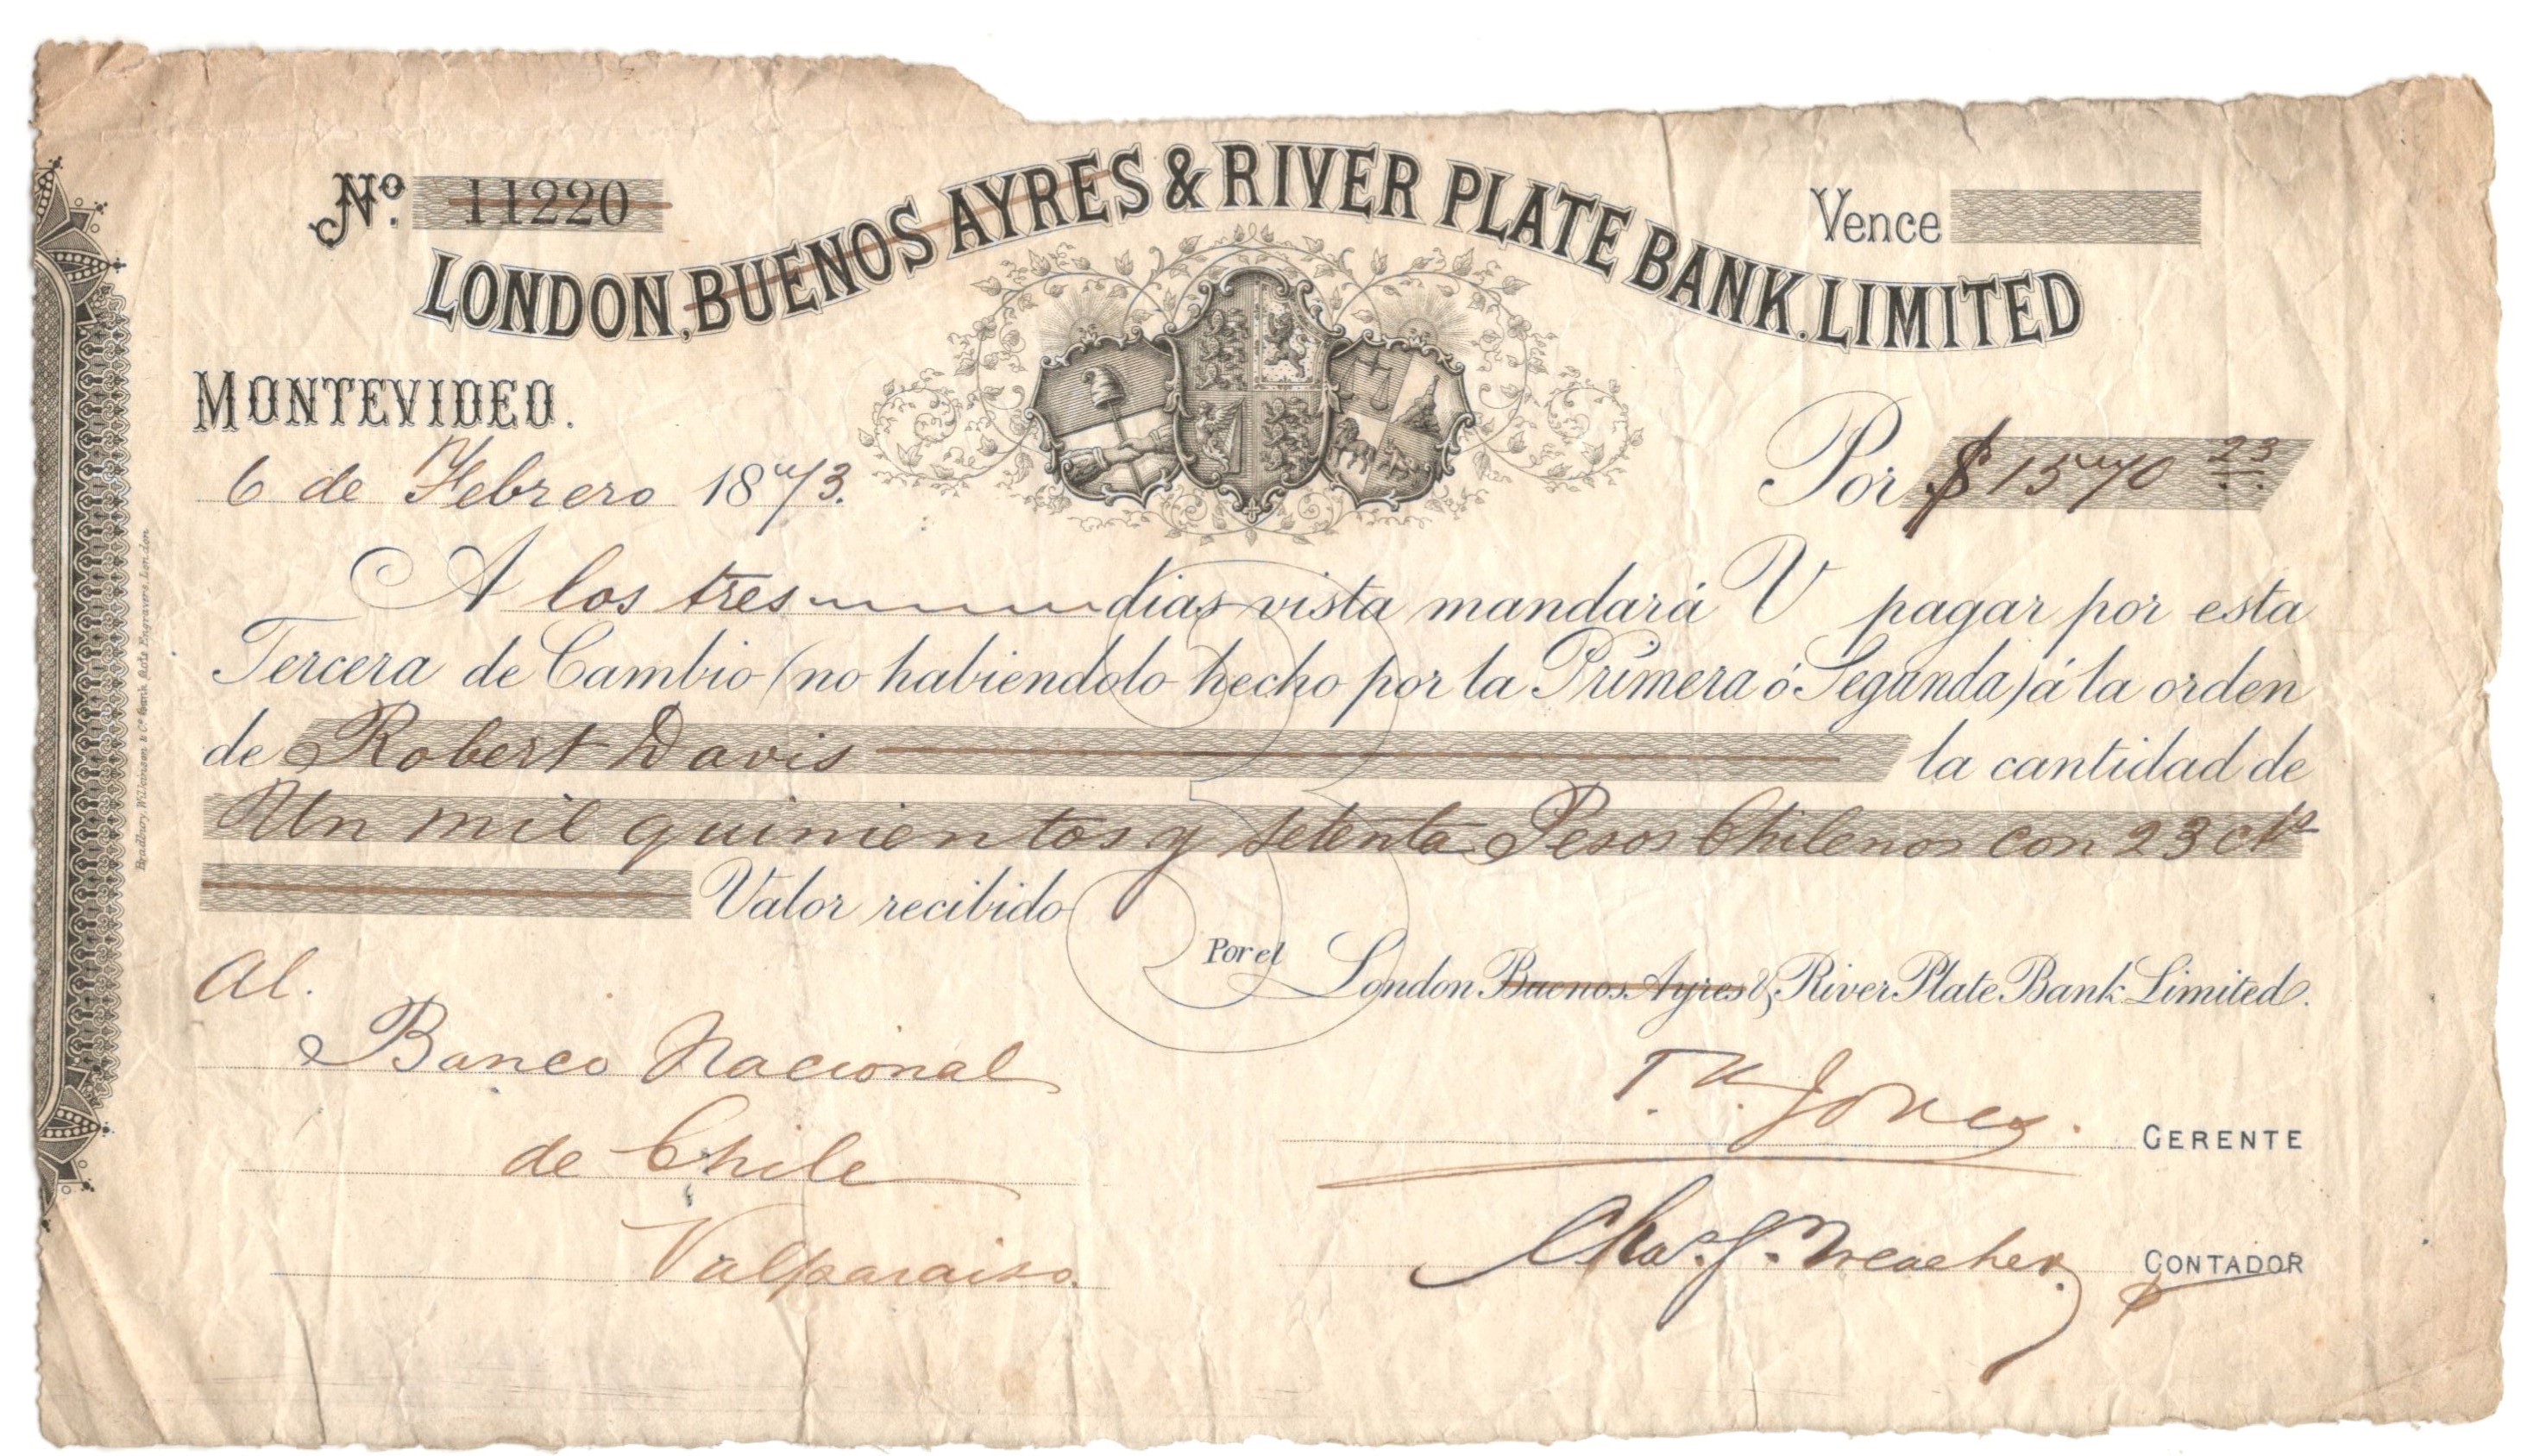 Nº. 11220
LONDON, BUENOS AYRES & RIVER PLATE BANK. LIMITED
Vence
MONTEVIDEO.
6 de Febrero 1873.
Por $1570 23
A los tres dias vista mandará V pagar por esta
Tercera de Cambio (no habiendolo hecho por la Primera ó Segunda) á la orden
de Robert Davis la cantidad de
Un mil quinientos y setenta Pesos Chilenos con 23 cts
Valor recibido
Por el London Buenos Ayres & River Plate Bank Limited.
Al.
Banco Nacional
de Chile
Valparaiso.
T. H. Jones. GERENTE
Chas. J. Meacher. CONTADOR
Bradbury, Wilkinson & Co. Bank Note Engravers, London.
3